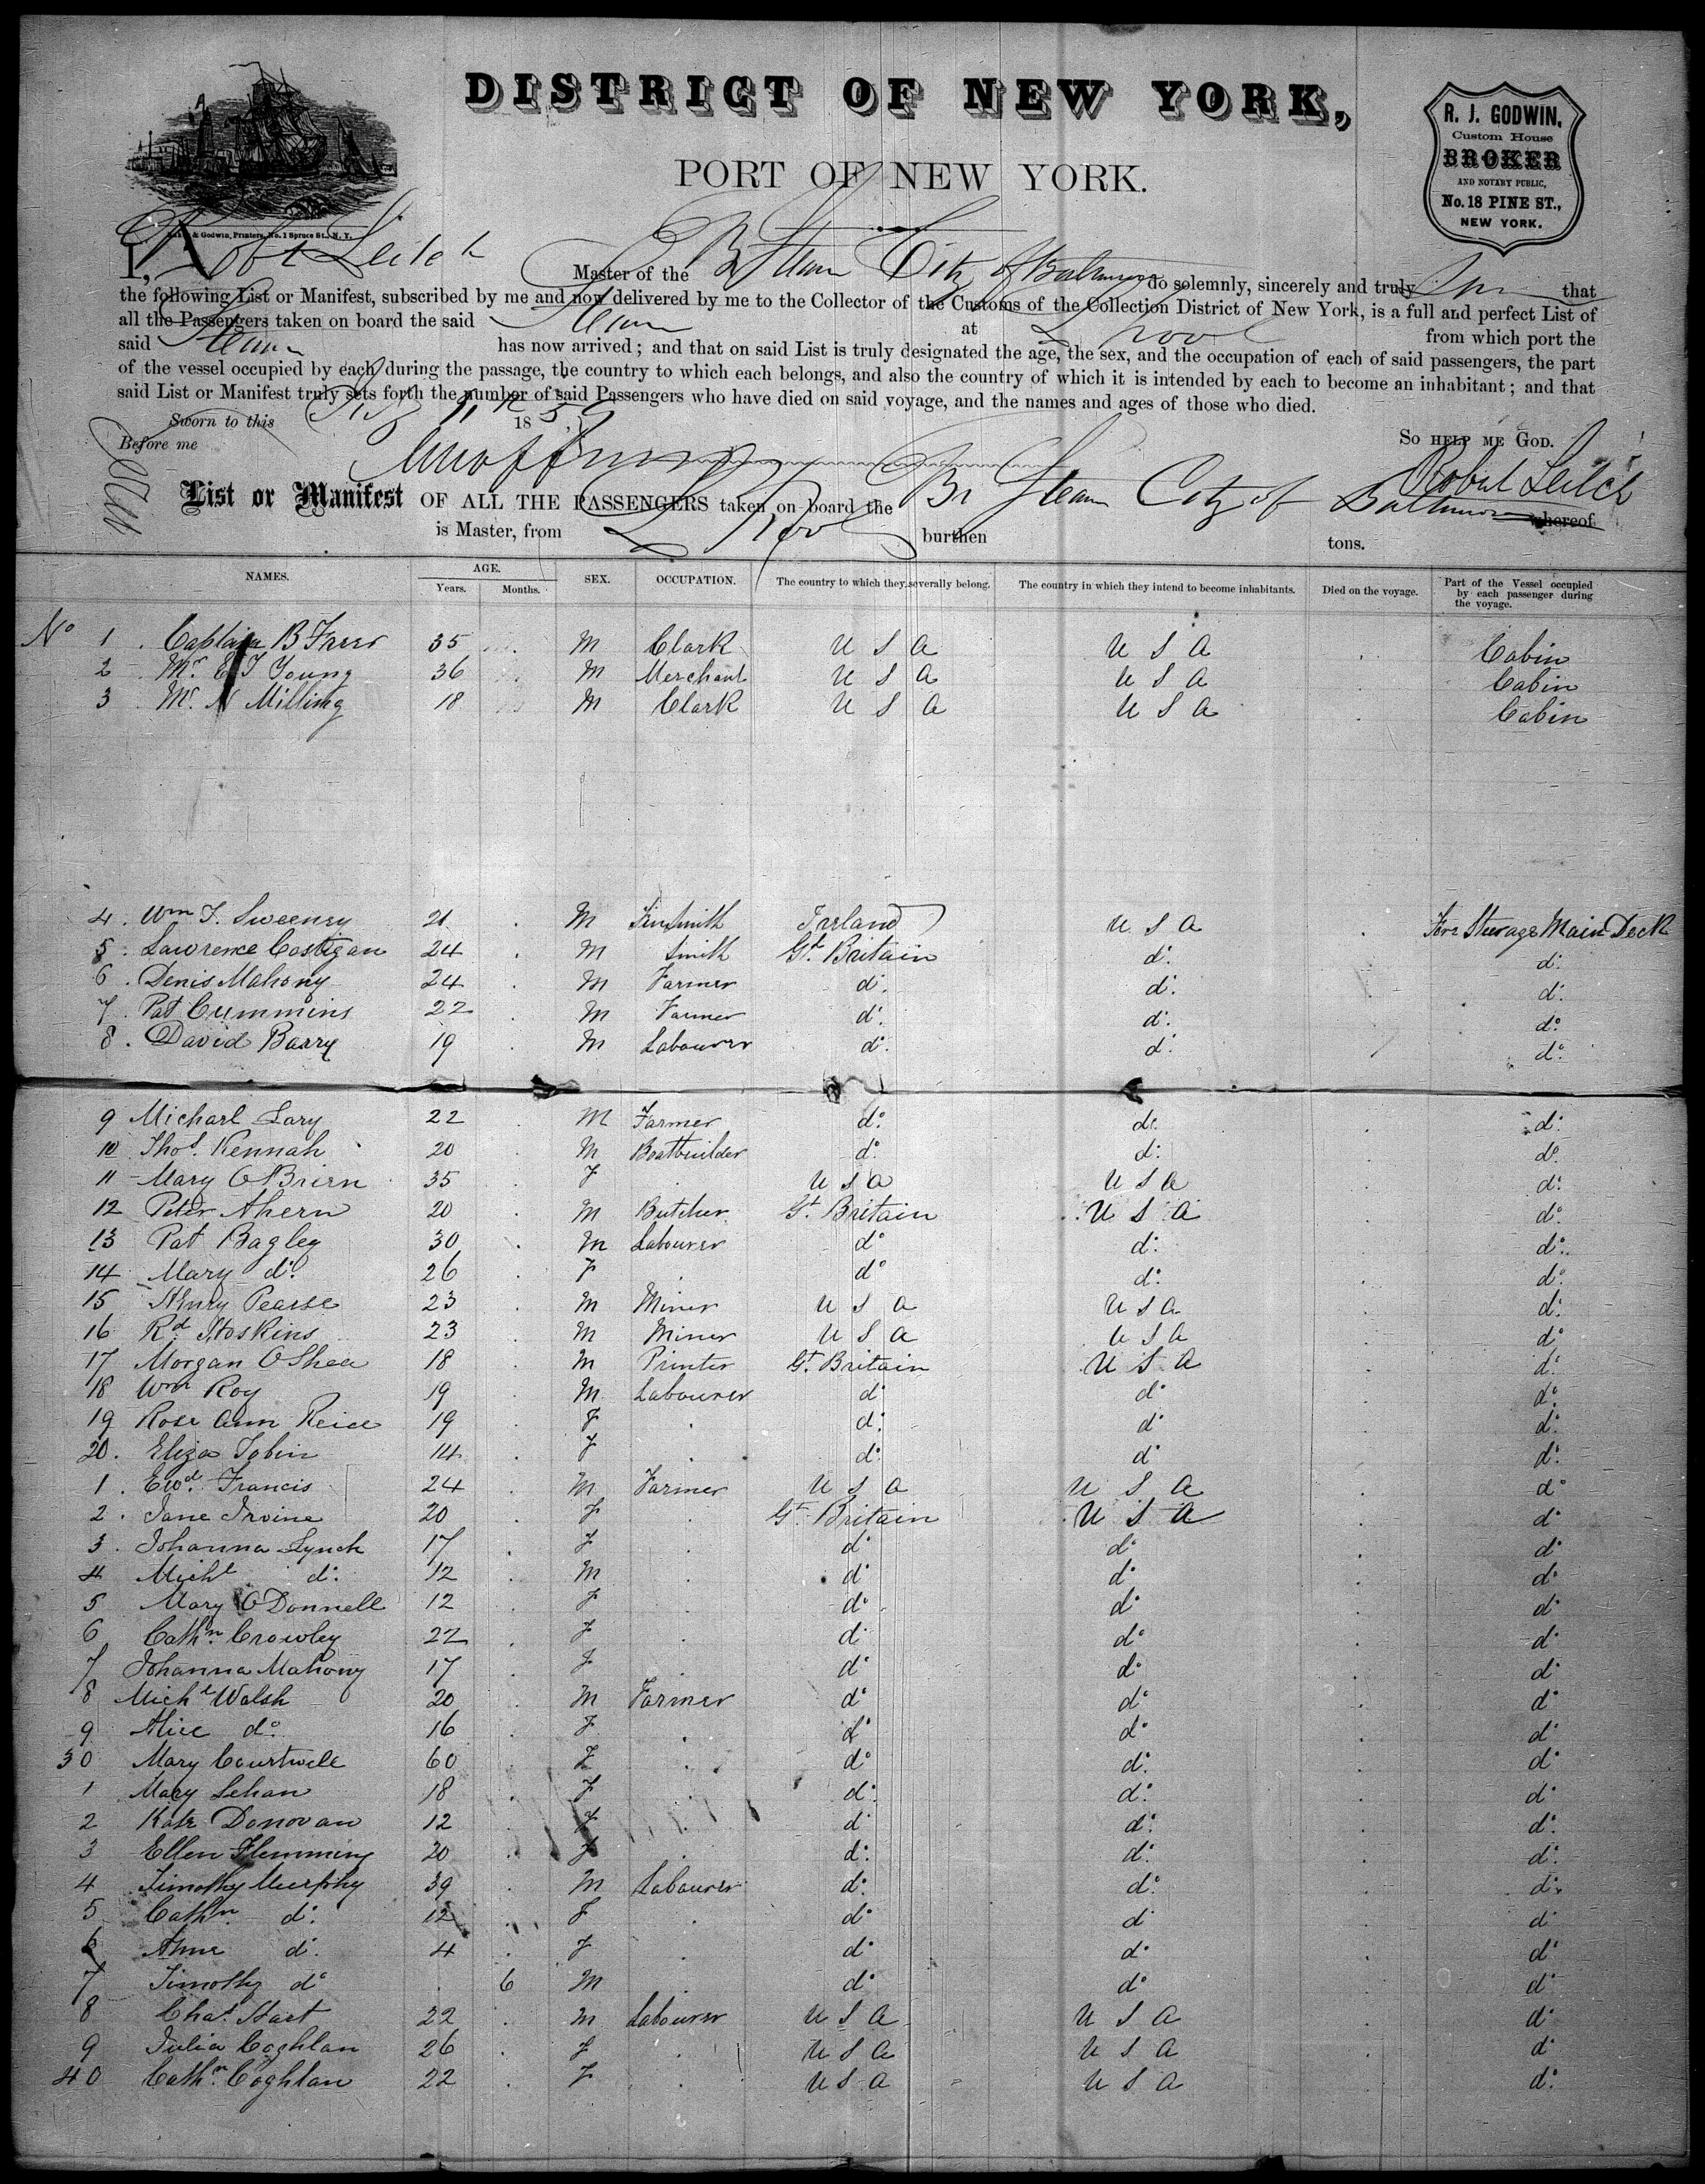 DISTRICT OF NEW YORK,
PORT OF NEW YORK.
R. J. GODWIN,
Custom House
BROKER
AND NOTARY PUBLIC,
No. 18 PINE ST.,
NEW YORK.
Baker & Godwin, Printers, No. 1 Spruce St., N. Y.
I, Robt Leitch Master of the Br Steam City of Baltimore do solemnly, sincerely and truly that
the following List or Manifest, subscribed by me and now delivered by me to the Collector of the Customs of the Collection District of New York, is a full and perfect List of
all the Passengers taken on board the said Steam at L Pool from which port the
said Steam has now arrived; and that on said List is truly designated the age, the sex, and the occupation of each of said passengers, the part
of the vessel occupied by each during the passage, the country to which each belongs, and also the country of which it is intended by each to become an inhabitant; and that
said List or Manifest truly sets forth the number of said Passengers who have died on said voyage, and the names and ages of those who died.
Sworn to this 18 59
So HELP ME GOD.
Before me
Robert Leitch
List or Manifest OF ALL THE PASSENGERS taken on board the Br Steam City of Baltimore whereof
is Master, from L Pool burthen tons.
NAMES. AGE. Years. Months. SEX. OCCUPATION. The country to which they severally belong. The country in which they intend to become inhabitants. Died on the voyage. Part of the Vessel occupied by each passenger during the voyage.
No 1 Captain B Frerr 35 M Clark U S A U S A Cabin
2 Mr. E T Young 36 M Merchant U S A U S A Cabin
3 Mr. N Milling 18 M Clark U S A U S A Cabin
4. Wm T. Sweensy 21 M Tinsmith Irland U S A Fore Sturage Main Deck
5. Lawrence Costigan 24 M Smith Gt. Britain do. do.
6. Denis Mahony 24 M Farmer do. do. do.
7. Pat Cummins 22 M Farmer do. do. do.
8. David Barry 19 M Labourer do. do. do.
9 Michael Lary 22 M Farmer do. do. do.
10 Thos. Kennah 20 M Boatbuilder do. do. do.
11 Mary O Brien 35 F U S A U S A do.
12 Peter Ahern 20 M Butcher Gt. Britain U S A do.
13 Pat Bagley 30 M Labourer do do. do.
14 Mary do. 26 F do do. do.
15 Henry Pearse 23 M Miner U S A U S A do.
16 Rd. Hoskins 23 M Miner U S A U S A do
17 Morgan O Shea 18 M Printer Gt. Britain U S A do.
18 Wm Roy 19 M Labourer do do do.
19 Rose Ann Reice 19 F do. do do.
20. Eliza Tobin 14 F do. do do.
1. Ewd. Francis 24 M Farmer U S A U S A do
2. Jane Irvine 20 F Gt. Britain U S A do
3. Johanna Lynch 17 F do do do
4 Michl do. 12 M do do do
5 Mary O Donnell 12 F do do do
6 Cathn. Crowley 22 F do do do
7 Johanna Mahony 17 F do do do
8 Michl Walsh 20 M Farmer do do do
9 Alice do. 16 F do do do
30 Mary Courtwele 60 F do do. do
1 Mary Lehan 18 F do. do. do
2 Kate Donovan 12 F do do. do.
3 Ellen Flemming 20 F do. do. do.
4 Timothy Murphy 39 M Labourer do. do. do.
5 Cathn do. 12 F do do do
6 Anne do. 4 F do do do
7 Timothy do 6 M do do do
8 Chas. Hart 22 M Labourer U S A U S A do
9 Julia Coghlan 26 F U S A U S A do
40 Cathn. Coghlan 22 F U S A U S A do.